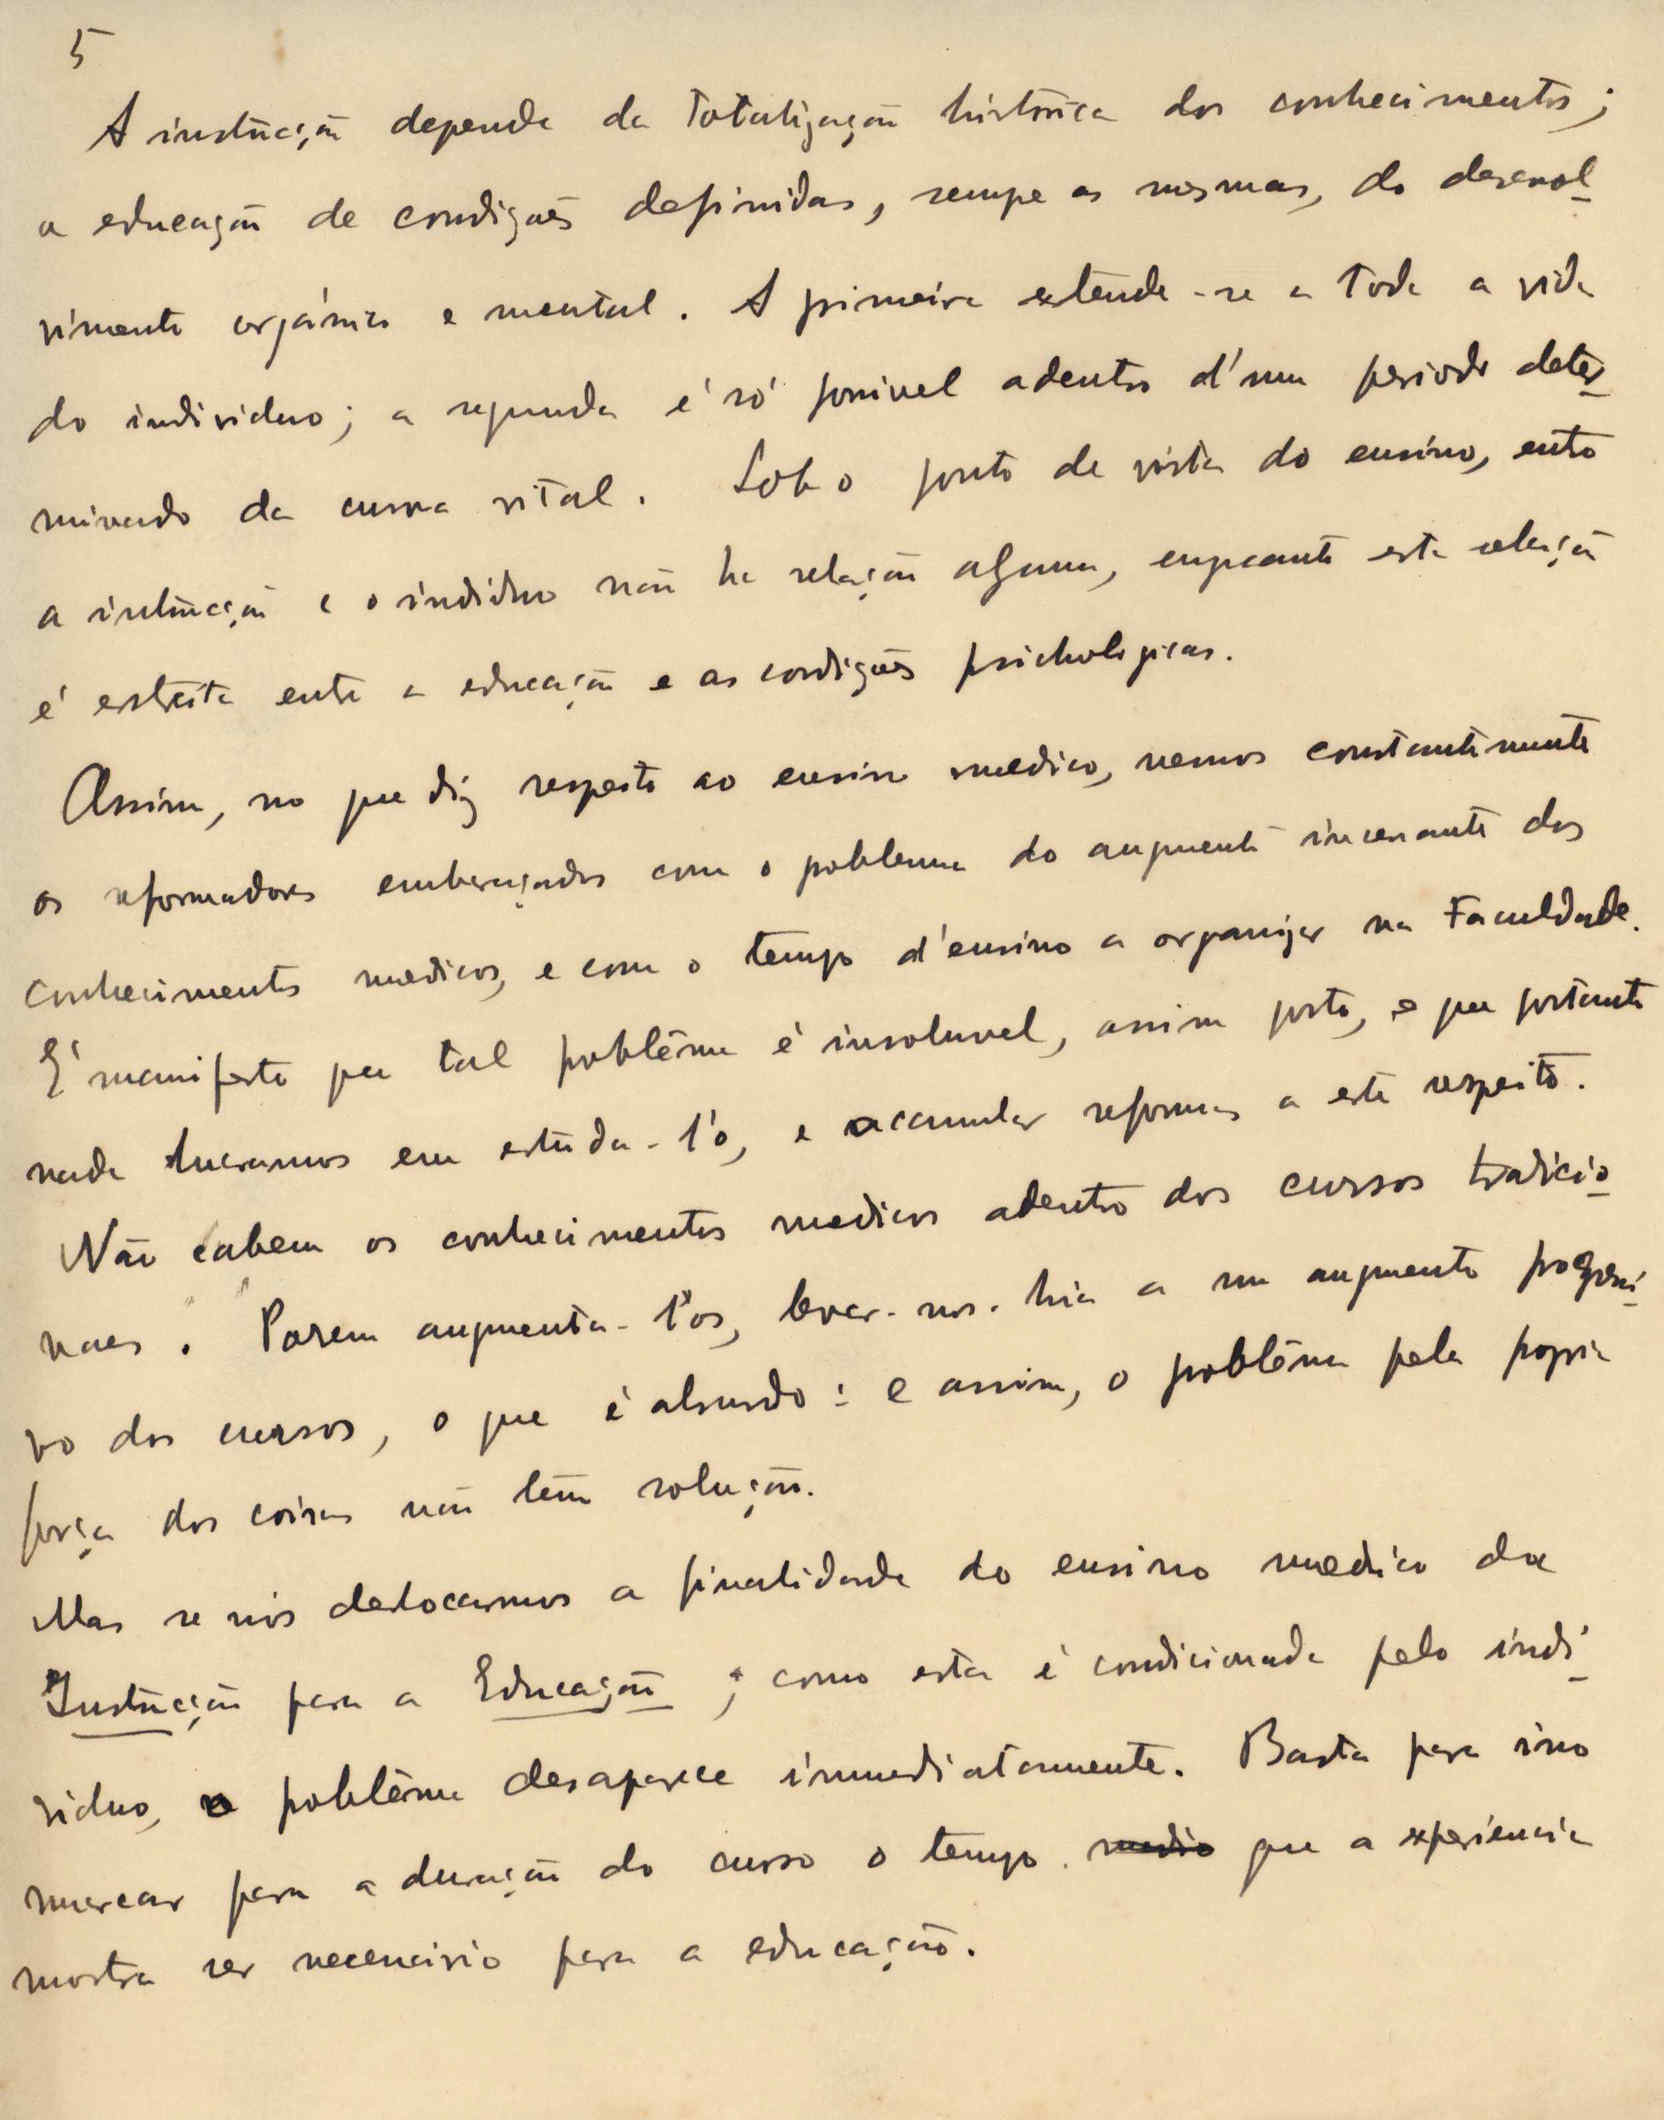 5
A instrucção depende da totalização historica dos conhecimentos;
a educação de condições definidas, sempre as mesmas, do desenvol-
vimento orgánico e mental. A primeira extende-se a toda a vida
do individuo; a segunda é só possivel adentro d'um periodo deter-
minado da curva vital. Sob o ponto de vista do ensino, entre
a instrucção e o indiduo não ha relação alguma, emquanto esta relação
é estreita entre a educação e as condições psichologicas.
Assim, no que diz respeito ao ensino medico, vemos constantemente
os reformadores embaraçados com o problema do augmento incessante dos
conhecimentos medicos, e com o tempo d'ensino a organizar na Faculdade.
É manifesto que tal probléma é insoluvel, assim posto, e que portanto
nada lucramos em estuda-l'o, e accumular reformas a este respeito.
Não cabem os conhecimentos medicos adentro dos cursos tradicio-
naes. Porem augmenta-l'os, levar-nos-hia a um augmento progressi-
vo dos cursos, o que é absurdo: e assim, o probléma pela propria
força das coisas não têm solução.
Mas se nós deslocarmos a finalidade do ensino medico da
Instrucção para a Educação; como esta é condicionada pelo indi-
viduo, o probléma desaparece immediatamente. Basta para isso
marcar para a duração do curso o tempo medio que a experiencia
mostra ser necessário para a educação.